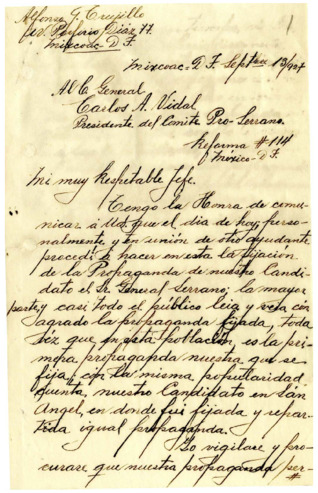 Alfonso G. Trujillo
Av. Porfirio Díaz 77.
Mixcoac- D F.
Mixcoac- D. F. Septbre 13/927
Al C. General
Carlos A. Vidal
Presidente del Comité Pro-Serrano.
Reforma # 114
México- D. F.
Mi muy Respetable Jefe.
Tengo la Honra de comu-
nicar á Ud. que el día de hoy, perso-
nalmente y en unión de otro ayudante
procedí á hacer en esta la fijación
de la Propaganda de nuestro Candi-
dato el Sr General Serrano; la mayor
parte, y casi todo el público leia y veia con
agrado la propaganda fijada, toda
vez que en esta población, es la pri-
mera propaganda nuestra que se
fija, con la misma popularidad
cuenta, nuestro Candidato en San
Angel, en donde fui fijada y repar-
tida igual propaganda.
Yo vigilare y pro-
curare que nuestra propaganda per-
#